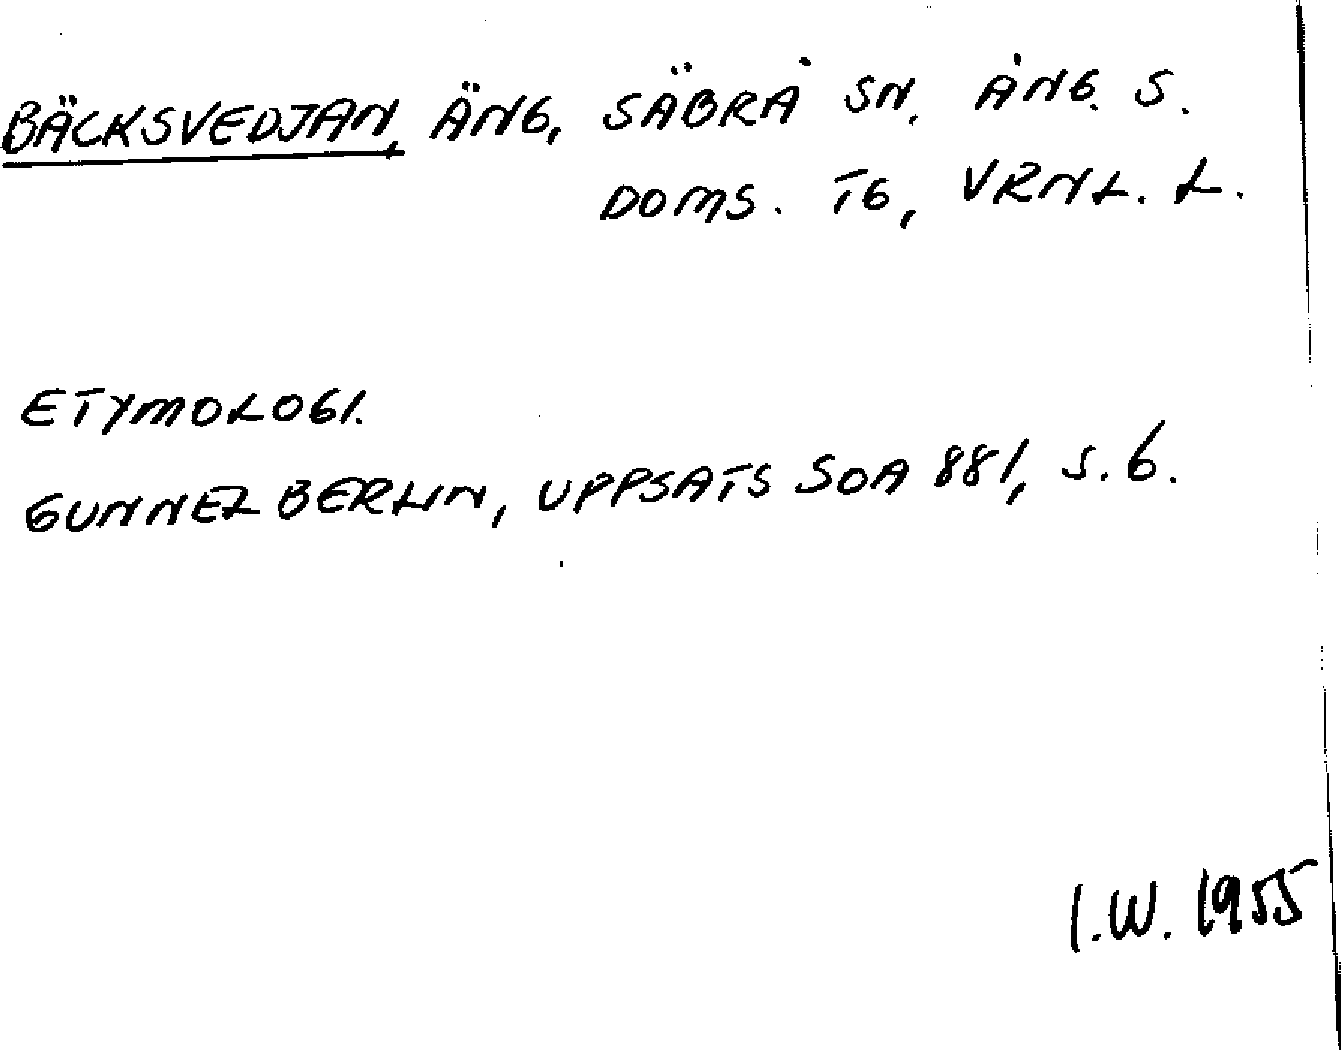 BÄCKSVEDJAN, ÄNG, SÄBRÅ SN. ÅNG. S.
DOMS. TG, VRNL. L.
ETYMOLOGI.
GUNNEL BERLIN, UPPSATS SOA 881, S. 6.
I.W. 1955